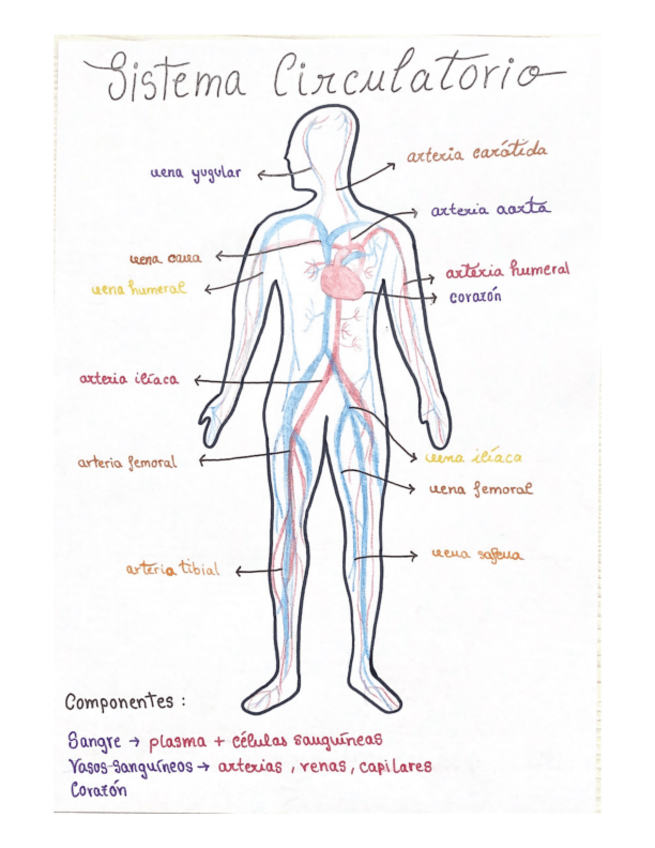 Sistema Circulatorio
arteria carótida
vena yugular
arteria aorta
vena cava
arteria humeral
vena humeral
corazón
arteria ilíaca
vena ilíaca
arteria femoral
vena femoral
vena safena
arteria tibial
Componentes :
Sangre → plasma + células sanguíneas
Vasos sanguíneos → arterias , venas , capilares
Corazón